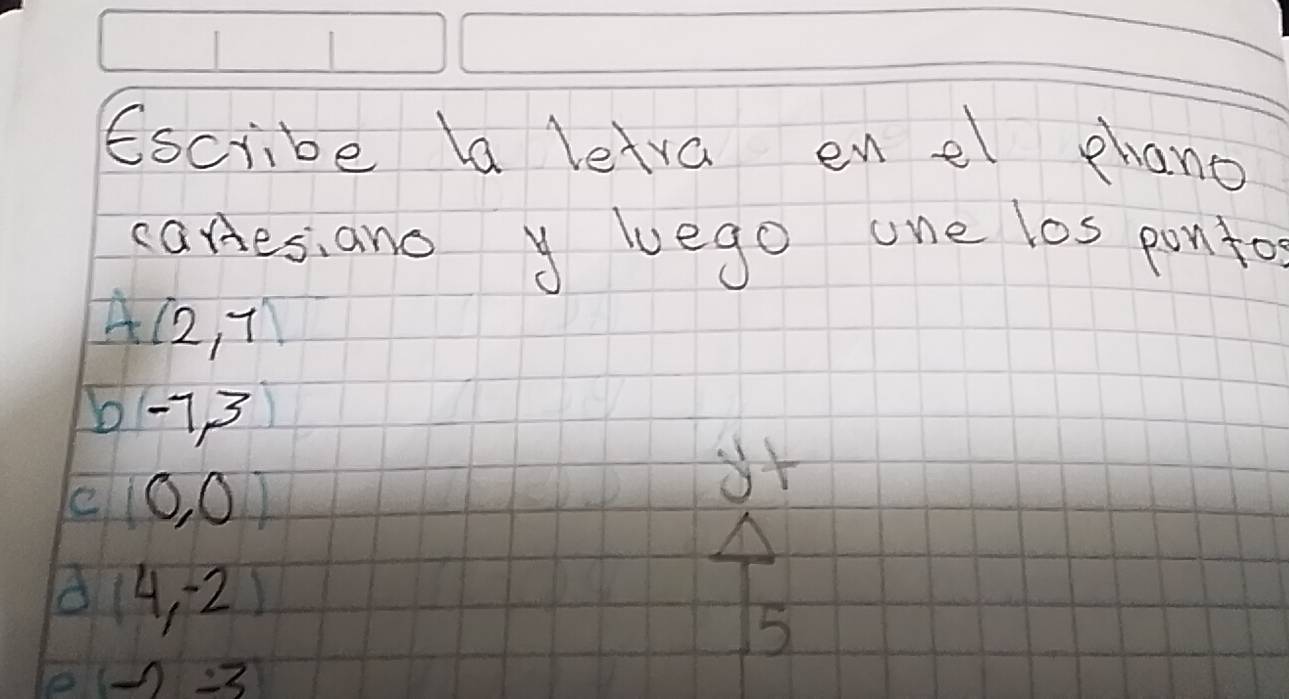 Escribe la letra en el plano
cartesiano y luego une los puntos
A(2,7)
b(-7,3)
c(0,0)
y+
d(4,-2)
5
e(-2,-3)